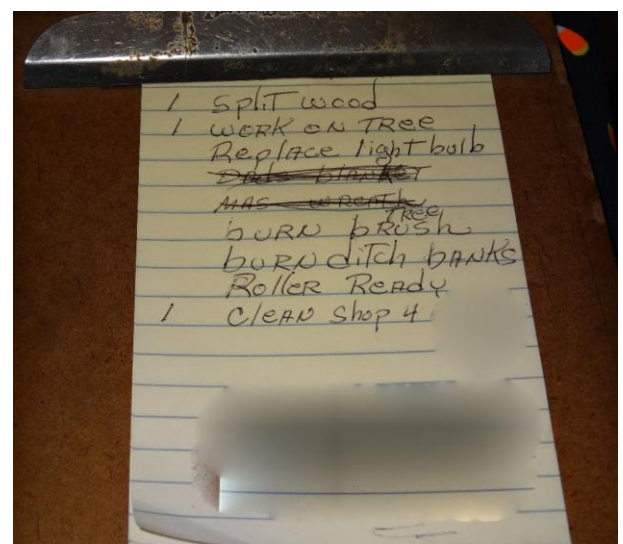 1 Split wood
1 work on Tree
Replace light bulb
Dads blanket
MAS wreath
Tree
burn brush
burn ditch banks
Roller Ready
1 Clean Shop 4